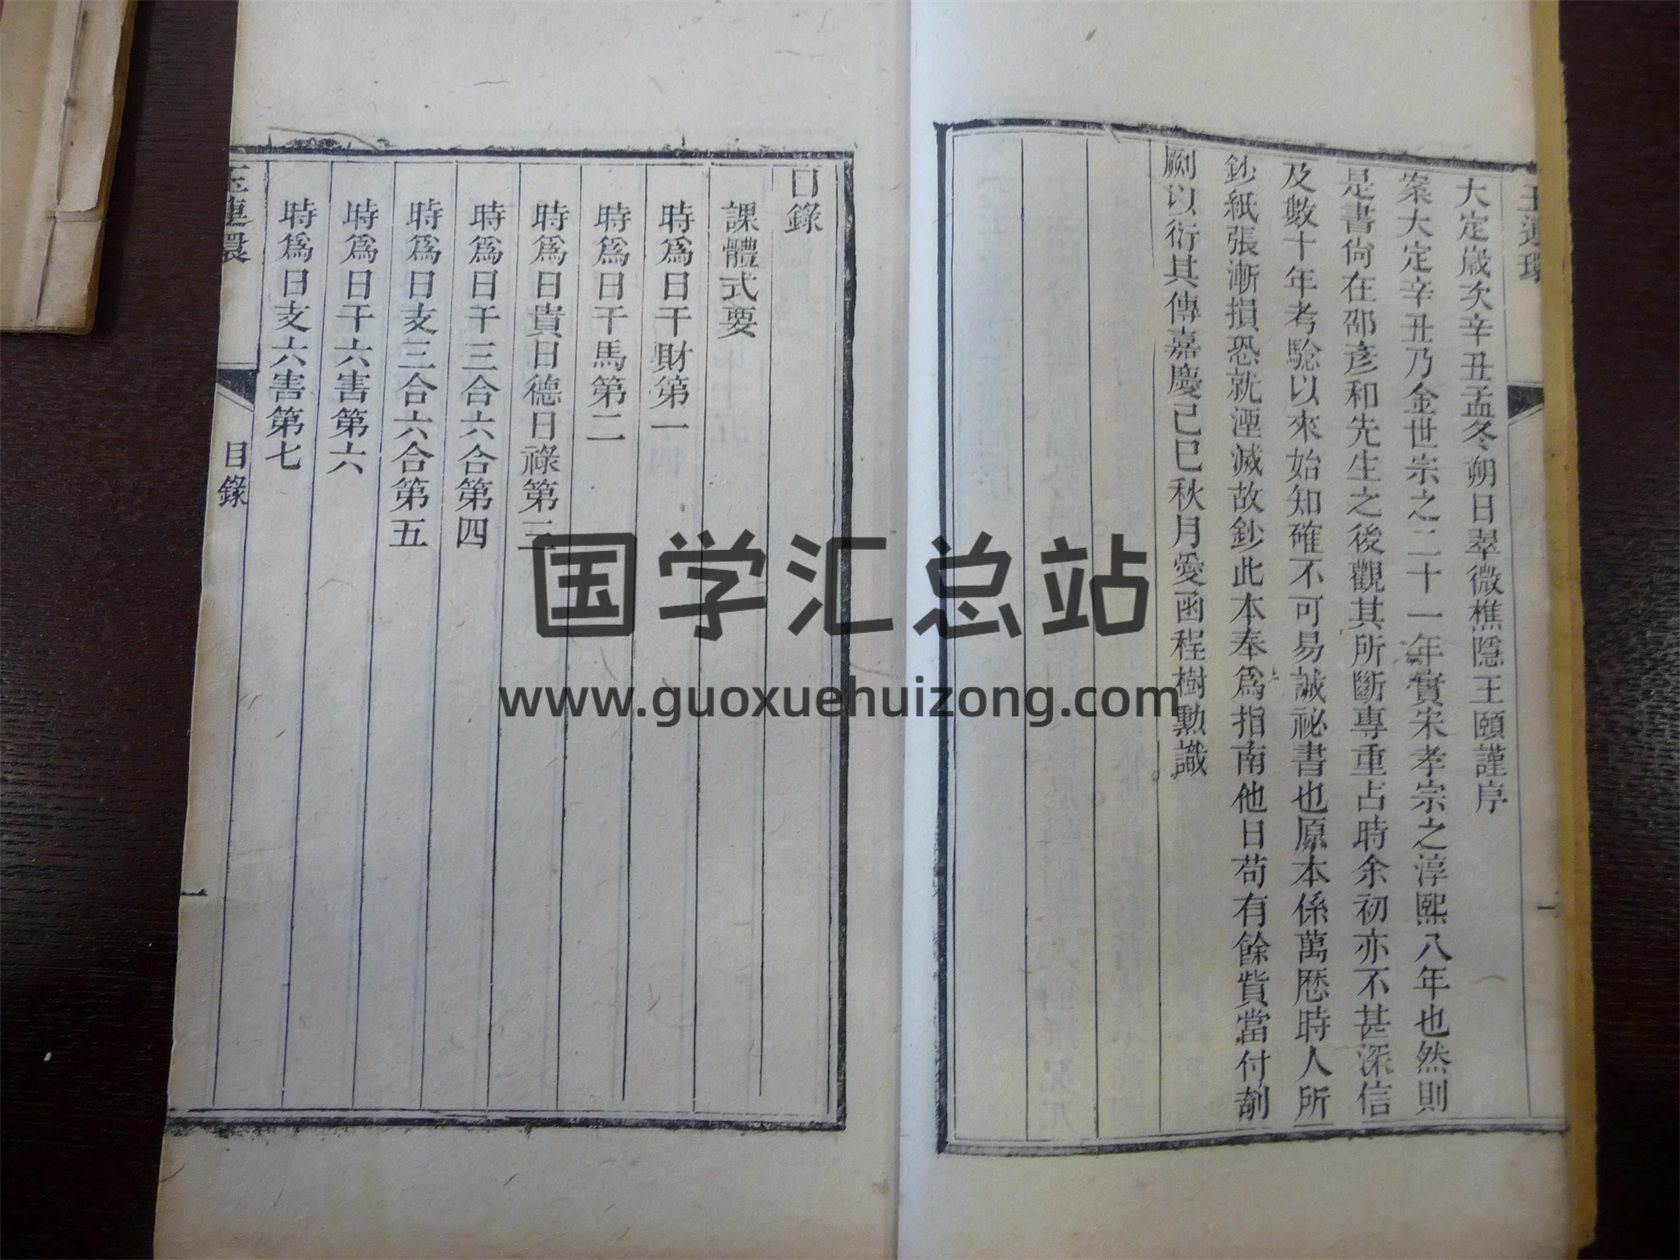 玉連環
大定歲次辛丑孟冬朔日翠微樵隱王頤謹序
案大定辛丑乃金世宗之二十一年實宋孝宗之淳熙八年也然則
是書尚在邵彥和先生之後觀其所斷專重占時余初亦不甚深信
及數十年考驗以來始知確不可易誠祕書也原本係萬厯時人所
鈔紙張漸損恐就湮滅故鈔此本奉爲指南他日苟有餘貲當付剞
劂以衍其傳嘉慶己巳秋月愛函程樹勲識
一
目錄
課體式要
時爲日干財第一
時爲日干馬第二
時爲日貴日德日祿第三
時爲日干三合六合第四
時爲日支三合六合第五
時爲日干六害第六
時爲日支六害第七
玉連環
目錄
一
国学汇总站
www.guoxuehuizong.com